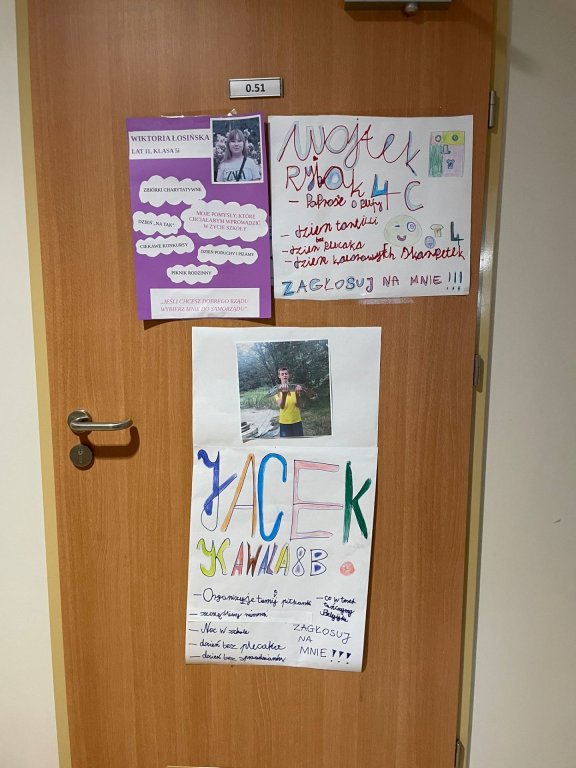 0.51
WIKTORIA ŁOSIŃSKA
LAT 11, KLASA 5i
ZBIÓRKI CHARYTATYWNE
DZIEŃ „NA TAK"
MOJE POMYSŁY, KTÓRE
CHCIAŁABYM WPROWADZIĆ
W ŻYCIE SZKOŁY
CIEKAWE KONKURSY
DZIEŃ PODUCHY I PIŻAMY
PIKNIK RODZINNY
„JEŚLI CHCESZ DOBREGO RZĄDU
WYBIERZ MNIE DO SAMORZĄDU"
Wojtek
Rybak 4C
- Poproszę o
- dzień
- dzień bez plecaka
- dzień kolorowych skarpetek
ZAGŁOSUJ NA MNIE !!!
JACEK
KAWKA 8B
- Organizuję
- Noc w szkole
- dzień bez plecaka
- dzień bez sprawdzianów
- co w
Belgijka
ZAGŁOSUJ
NA
MNIE !!!